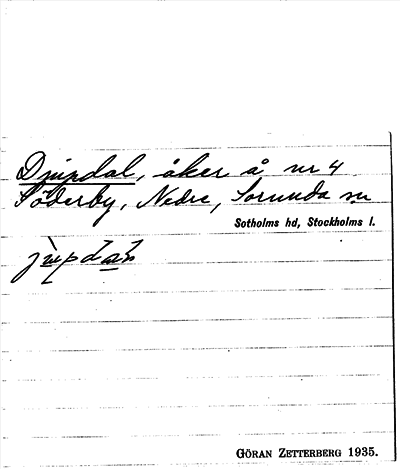 Djupdal, åker å nr 4
Söderby, Nedre, Sorunda sn
Sotholms hd, Stockholms l.
GÖRAN ZETTERBERG 1935.